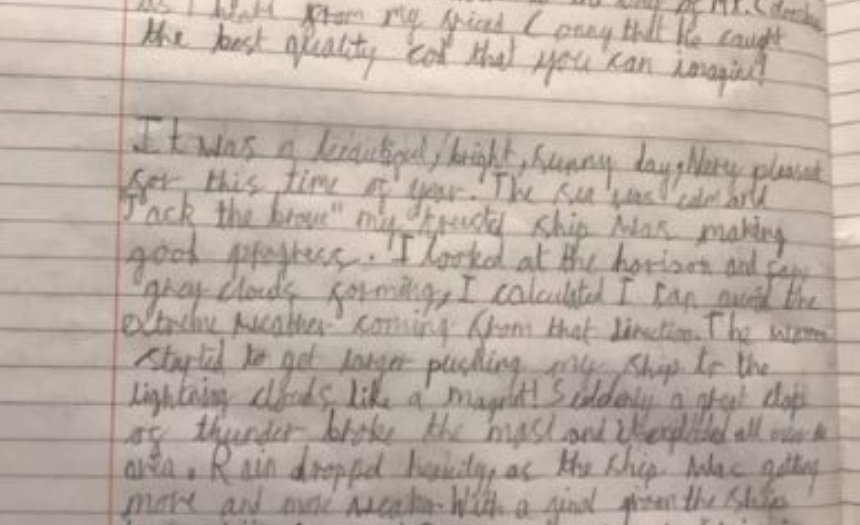 as I heard from my friend Conny that he caught
the best quality cod that you can imagine!
It was a beautiful, bright, sunny day; Very pleasant
for this time of year. The sea was calm and
"Jack the brave" my trusted ship was making
good progress. I looked at the horizon and saw
gray clouds forming, I calculated I can avoid the
extreme weather coming from that direction. The
started to get larger pushing my ship to the
lightning clouds like a magnet! Suddenly a great clap
of thunder broke the mast and it exploded all over
area. Rain dropped heavily, as the ship was getting
more and more weaker. With a final the ship